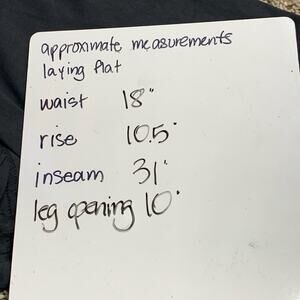 approximate measurements
laying flat
waist 18"
rise 10.5"
inseam 31"
leg opening 10"